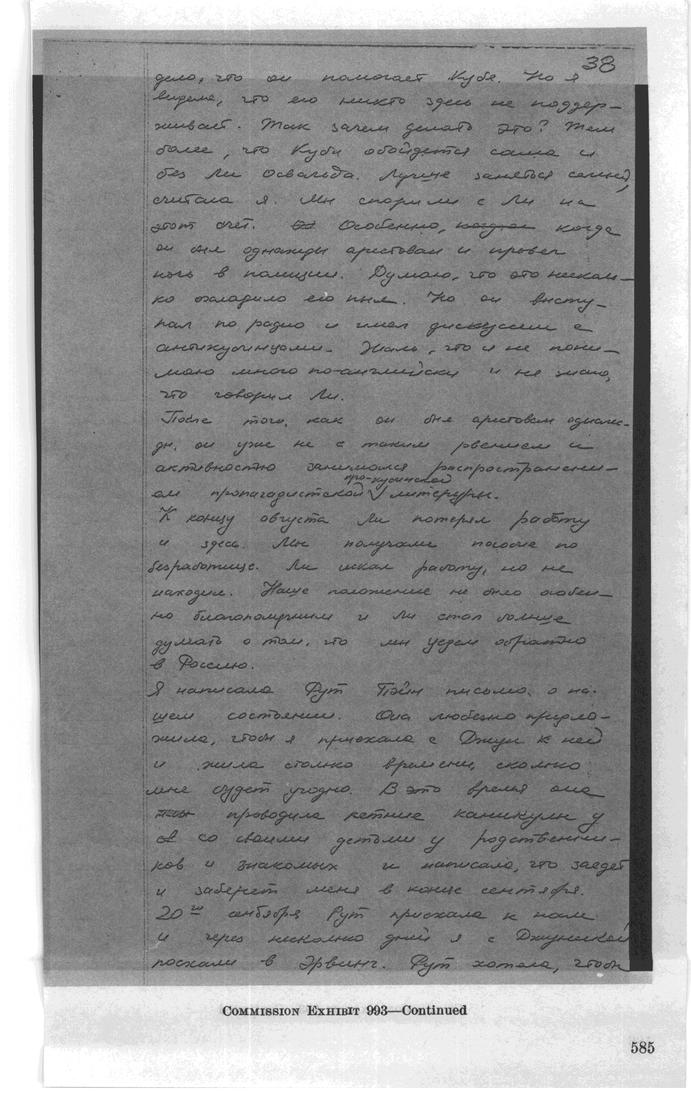 38
дело, что он помогает Кубе. Но я
видела, что его никто здесь не поддер-
живает. Так зачем делать это? Тем
более, что Куба обойдется сама и
без Ли Освальда. Лучше заняться семьей,
считала я. Мы спорили с Ли на
этот счет. Особенно, когда когда
он был однажды арестован и провел
ночь в полиции. Думаю, что это несколь-
ко охладило его пыл. Но он высту-
пал по радио и имел дискуссии с
антикубинцами. Жаль, что я не пони-
маю много по-английски и не знаю,
что говорил Ли.
После того, как он был арестован однаж-
ды, он уже не с таким рвением и
активностью занимался распространени-
про-кубинской
ем пропагадистской литературы.
К концу августа Ли потерял работу
и здесь. Мы получали пособие по
безработице. Ли искал работу, но не
находил. Наше положение не было особен-
но благополучным и Ли стал больше
думать о том, что мы уедем обратно
в Россию.
Я написала Рут Пэйн письмо о на-
шем состоянии. Она любезно предло-
жила, чтобы я приехала с Джун к ней
и жила столько времени, сколько
мне будет угодно. В это время она
проводила летние каникулы у
со своими детьми у родственни-
ков и знакомых и написала, что заедет
и заберет меня в конце сентября.
20го Рут приехала к нам
и через несколько дней я с Джунькой
поехали в Эрвинг. Рут хотела, чтобы
COMMISSION EXHIBIT 993—Continued
585